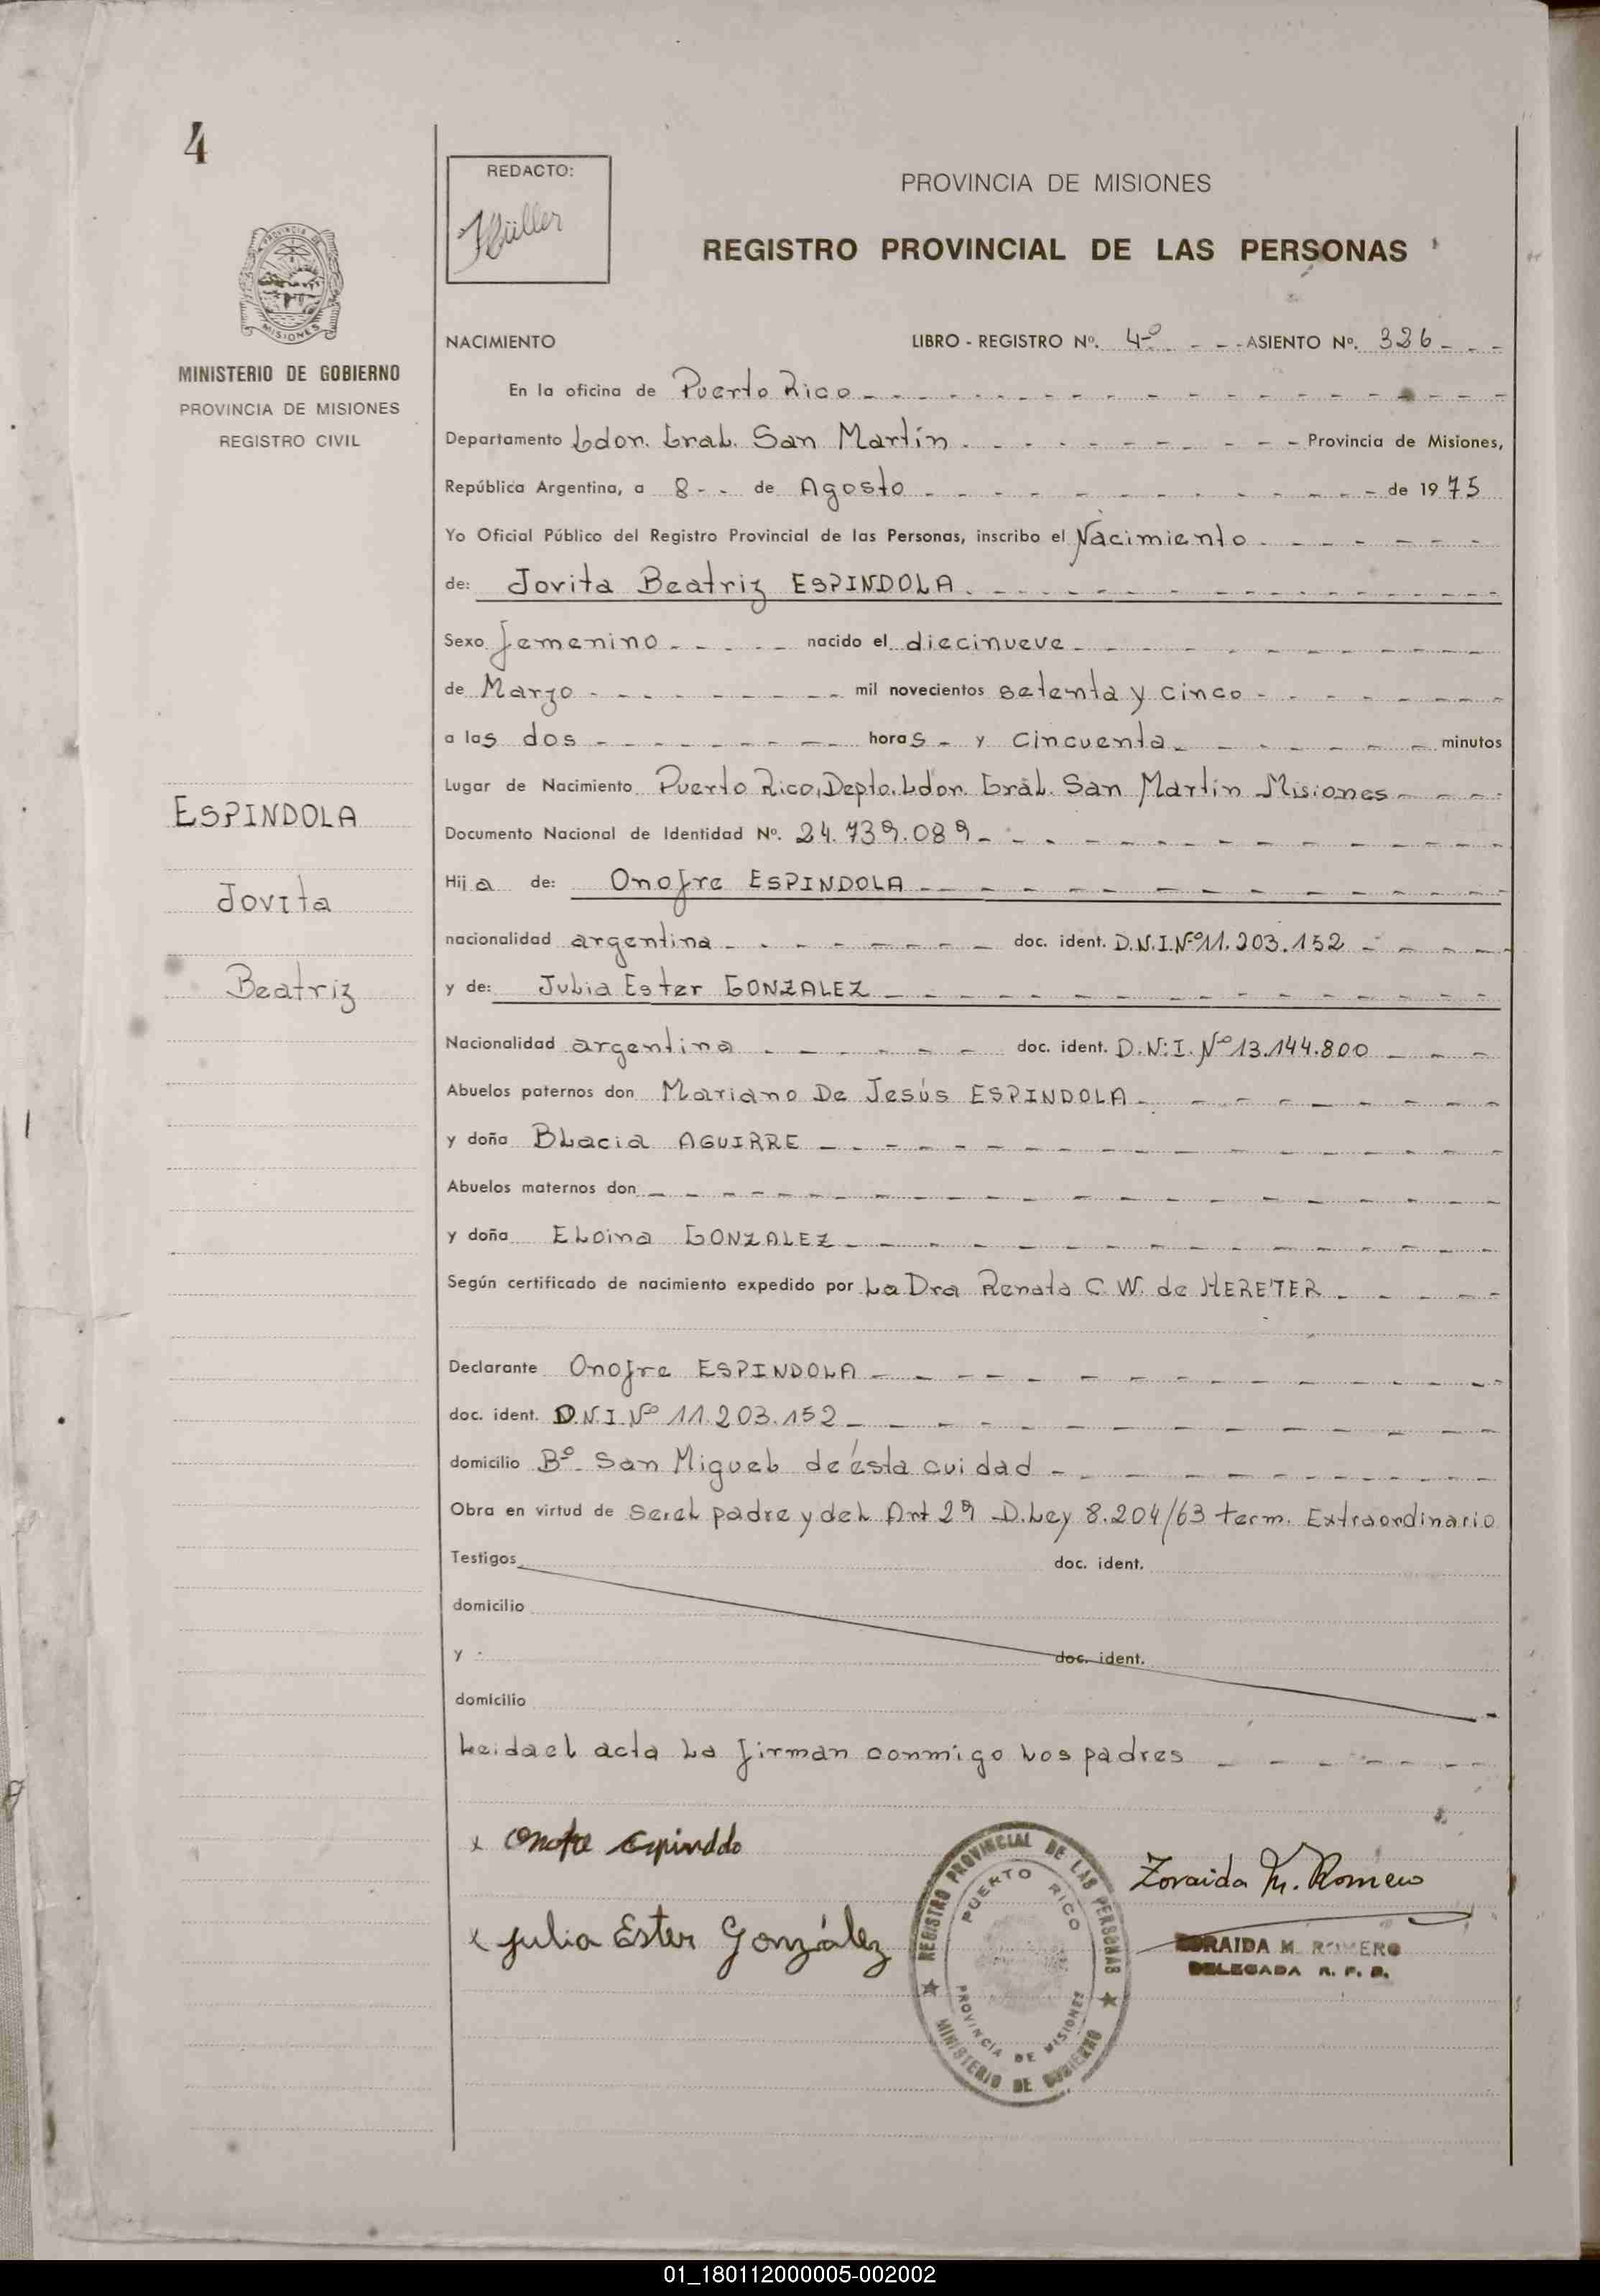 4
PROVINCIA DE
MISIONES
MINISTERIO DE GOBIERNO
PROVINCIA DE MISIONES
REGISTRO CIVIL
ESPINDOLA
Jovita
Beatriz
REDACTO:
PROVINCIA DE MISIONES
REGISTRO PROVINCIAL DE LAS PERSONAS
NACIMIENTO LIBRO - REGISTRO Nº. 4º - - - ASIENTO Nº. 326 - - -
En la oficina de Puerto Rico
Departamento Gdor. Gral. San Martín Provincia de Misiones,
República Argentina, a 8 - - de Agosto de 1975
Yo Oficial Público del Registro Provincial de las Personas, inscribo el Nacimiento
de: Jovita Beatriz ESPINDOLA
Sexo femenino nacido el diecinueve
de Marzo mil novecientos setenta y cinco
a las dos horas y cincuenta minutos
Lugar de Nacimiento Puerto Rico, Depto. Gdor. Gral. San Martín Misiones
Documento Nacional de Identidad Nº. 24.739.089
Hija de: Onofre ESPINDOLA
nacionalidad argentina doc. ident. D.N.I.Nº11.203.152
y de: Julia Ester GONZALEZ
Nacionalidad argentina doc. ident. D.N.I. Nº13.144.800
Abuelos paternos don Mariano De Jesús ESPINDOLA
y doña Blacia AGUIRRE
Abuelos maternos don
y doña Eloina GONZALEZ
Según certificado de nacimiento expedido por La Dra Renata C. W. de HERETER
Declarante Onofre ESPINDOLA
doc. ident. D.N.I Nº 11.203.152
domicilio Bº. San Miguel de ésta cuidad
Obra en virtud de ser el padre y del Art 29 D.Ley 8.204/63 term. Extraordinario
Testigos doc. ident.
domicilio
y doc. ident.
domicilio
Leida el acta la firman conmigo los padres
x Onofre Espinddo
x Julia Ester González
REGISTRO PROVINCIAL DE LAS PERSONAS
PUERTO RICO
PROVINCIA DE MISIONES
MINISTERIO DE GOBIERNO
Zoraida M. Romero
ZORAIDA M. ROMERO
DELEGADA R. P. P.
01_180112000005-002002